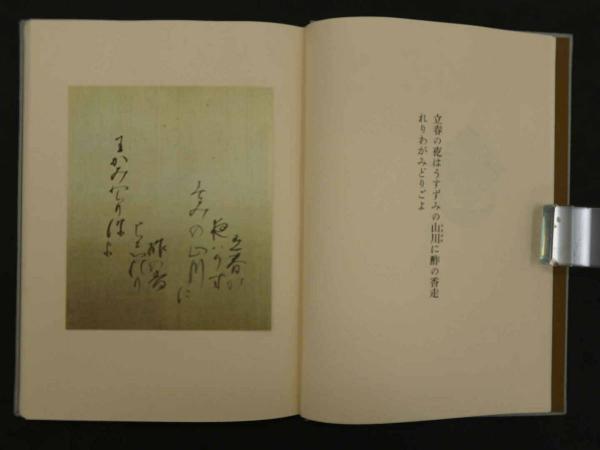 立春の夜はうすずみの山川に酢の香走
れりわがみどりごよ
立春の
夜はうす
ずみの山川に
酢の香